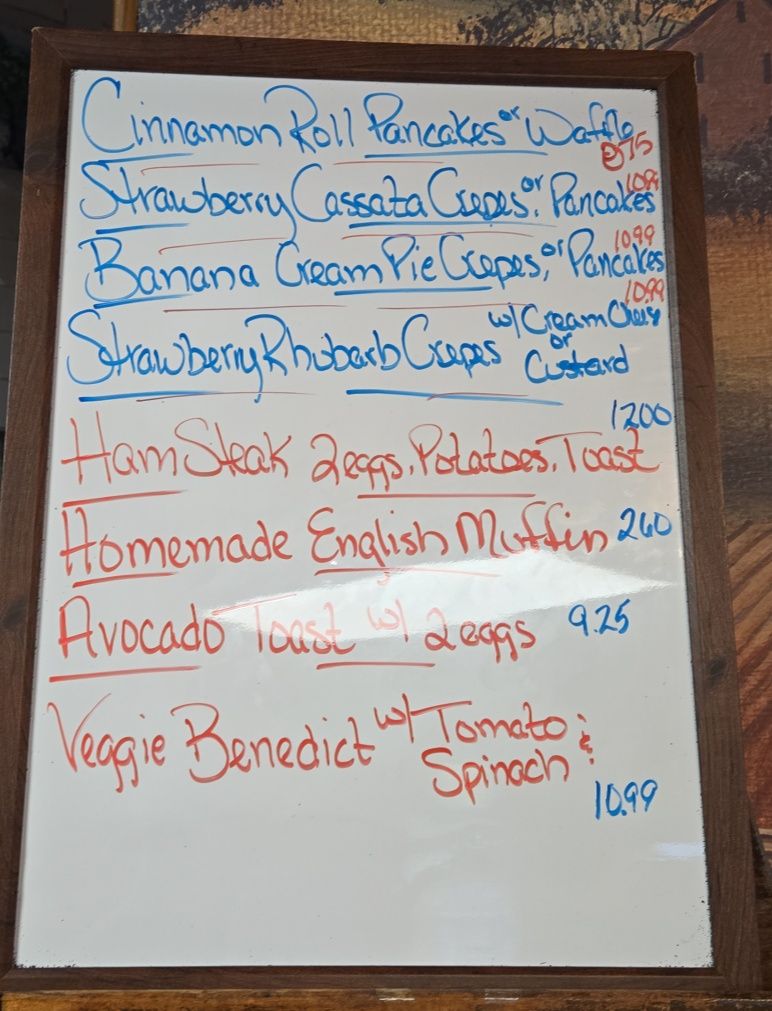 Cinnamon Roll Pancakes or Waffle
Strawberry Cassata Crepes, or Pancakes
10.99
Banana Cream Pie Crepes, or Pancakes
10.99
Strawberry Rhubarb Crepes w/ Cream Chees
or
Custard
10.99
Ham Steak 2 eggs, Potatoes, Toast
1200
Homemade English Muffin 260
Avocado Toast w/ 2 eggs 9.25
Veggie Benedict w/ Tomato &
Spinach
10.99